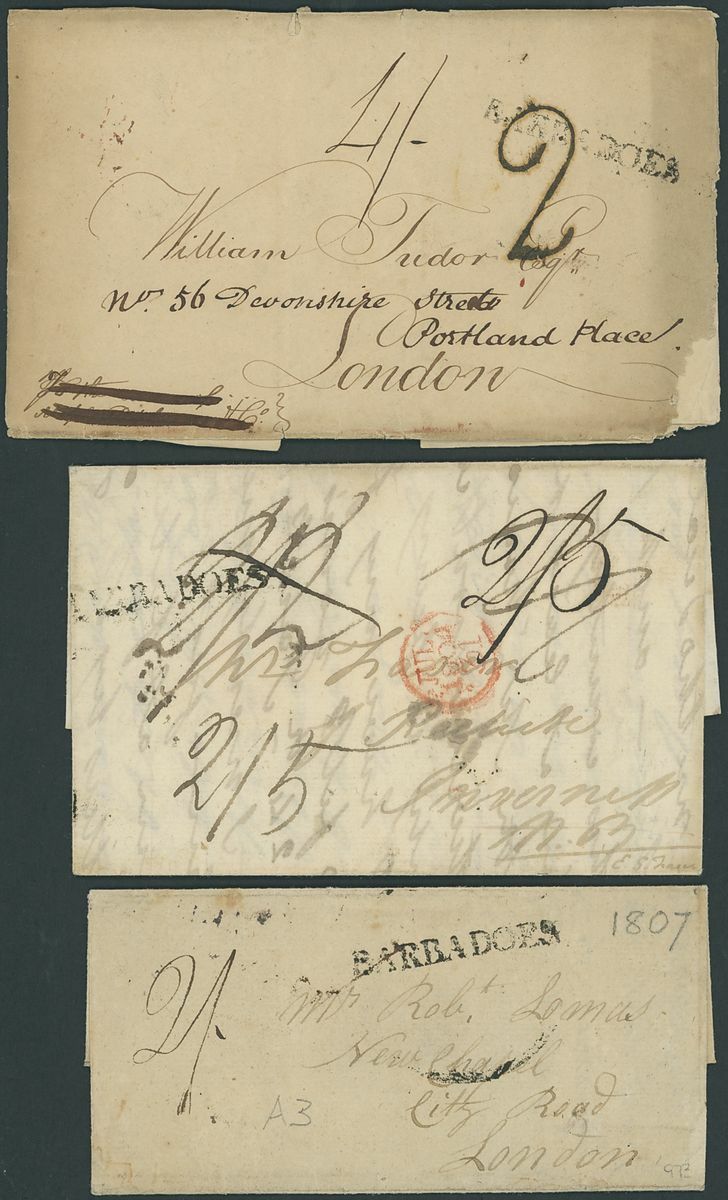 4/-
BARBADOES
2
William Tudor Esqr.
No. 56 Devonshire Street
Portland Place.
London
& Co.
BARBADOES
2/5
Mr
2/5
Inverness
N.B.
BARBADOES
1807
2/-
Mr Robt. Lomas
New Chapel
City Road
A3
London